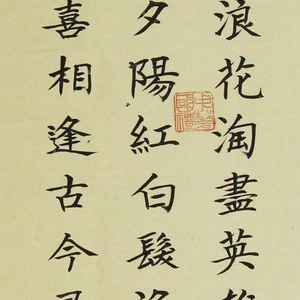 浪花淘盡英
夕陽紅白髮漁
喜相逢古今